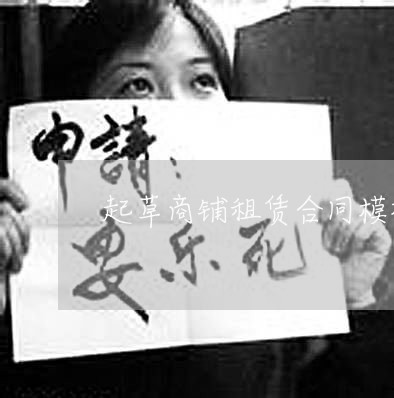 申請：
起草商铺租赁合同模
安乐死